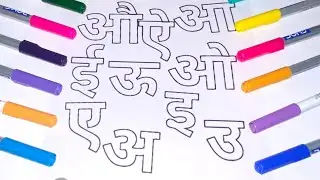 औ ऐ आ
ई ऊ ओ
ए अ इ उ